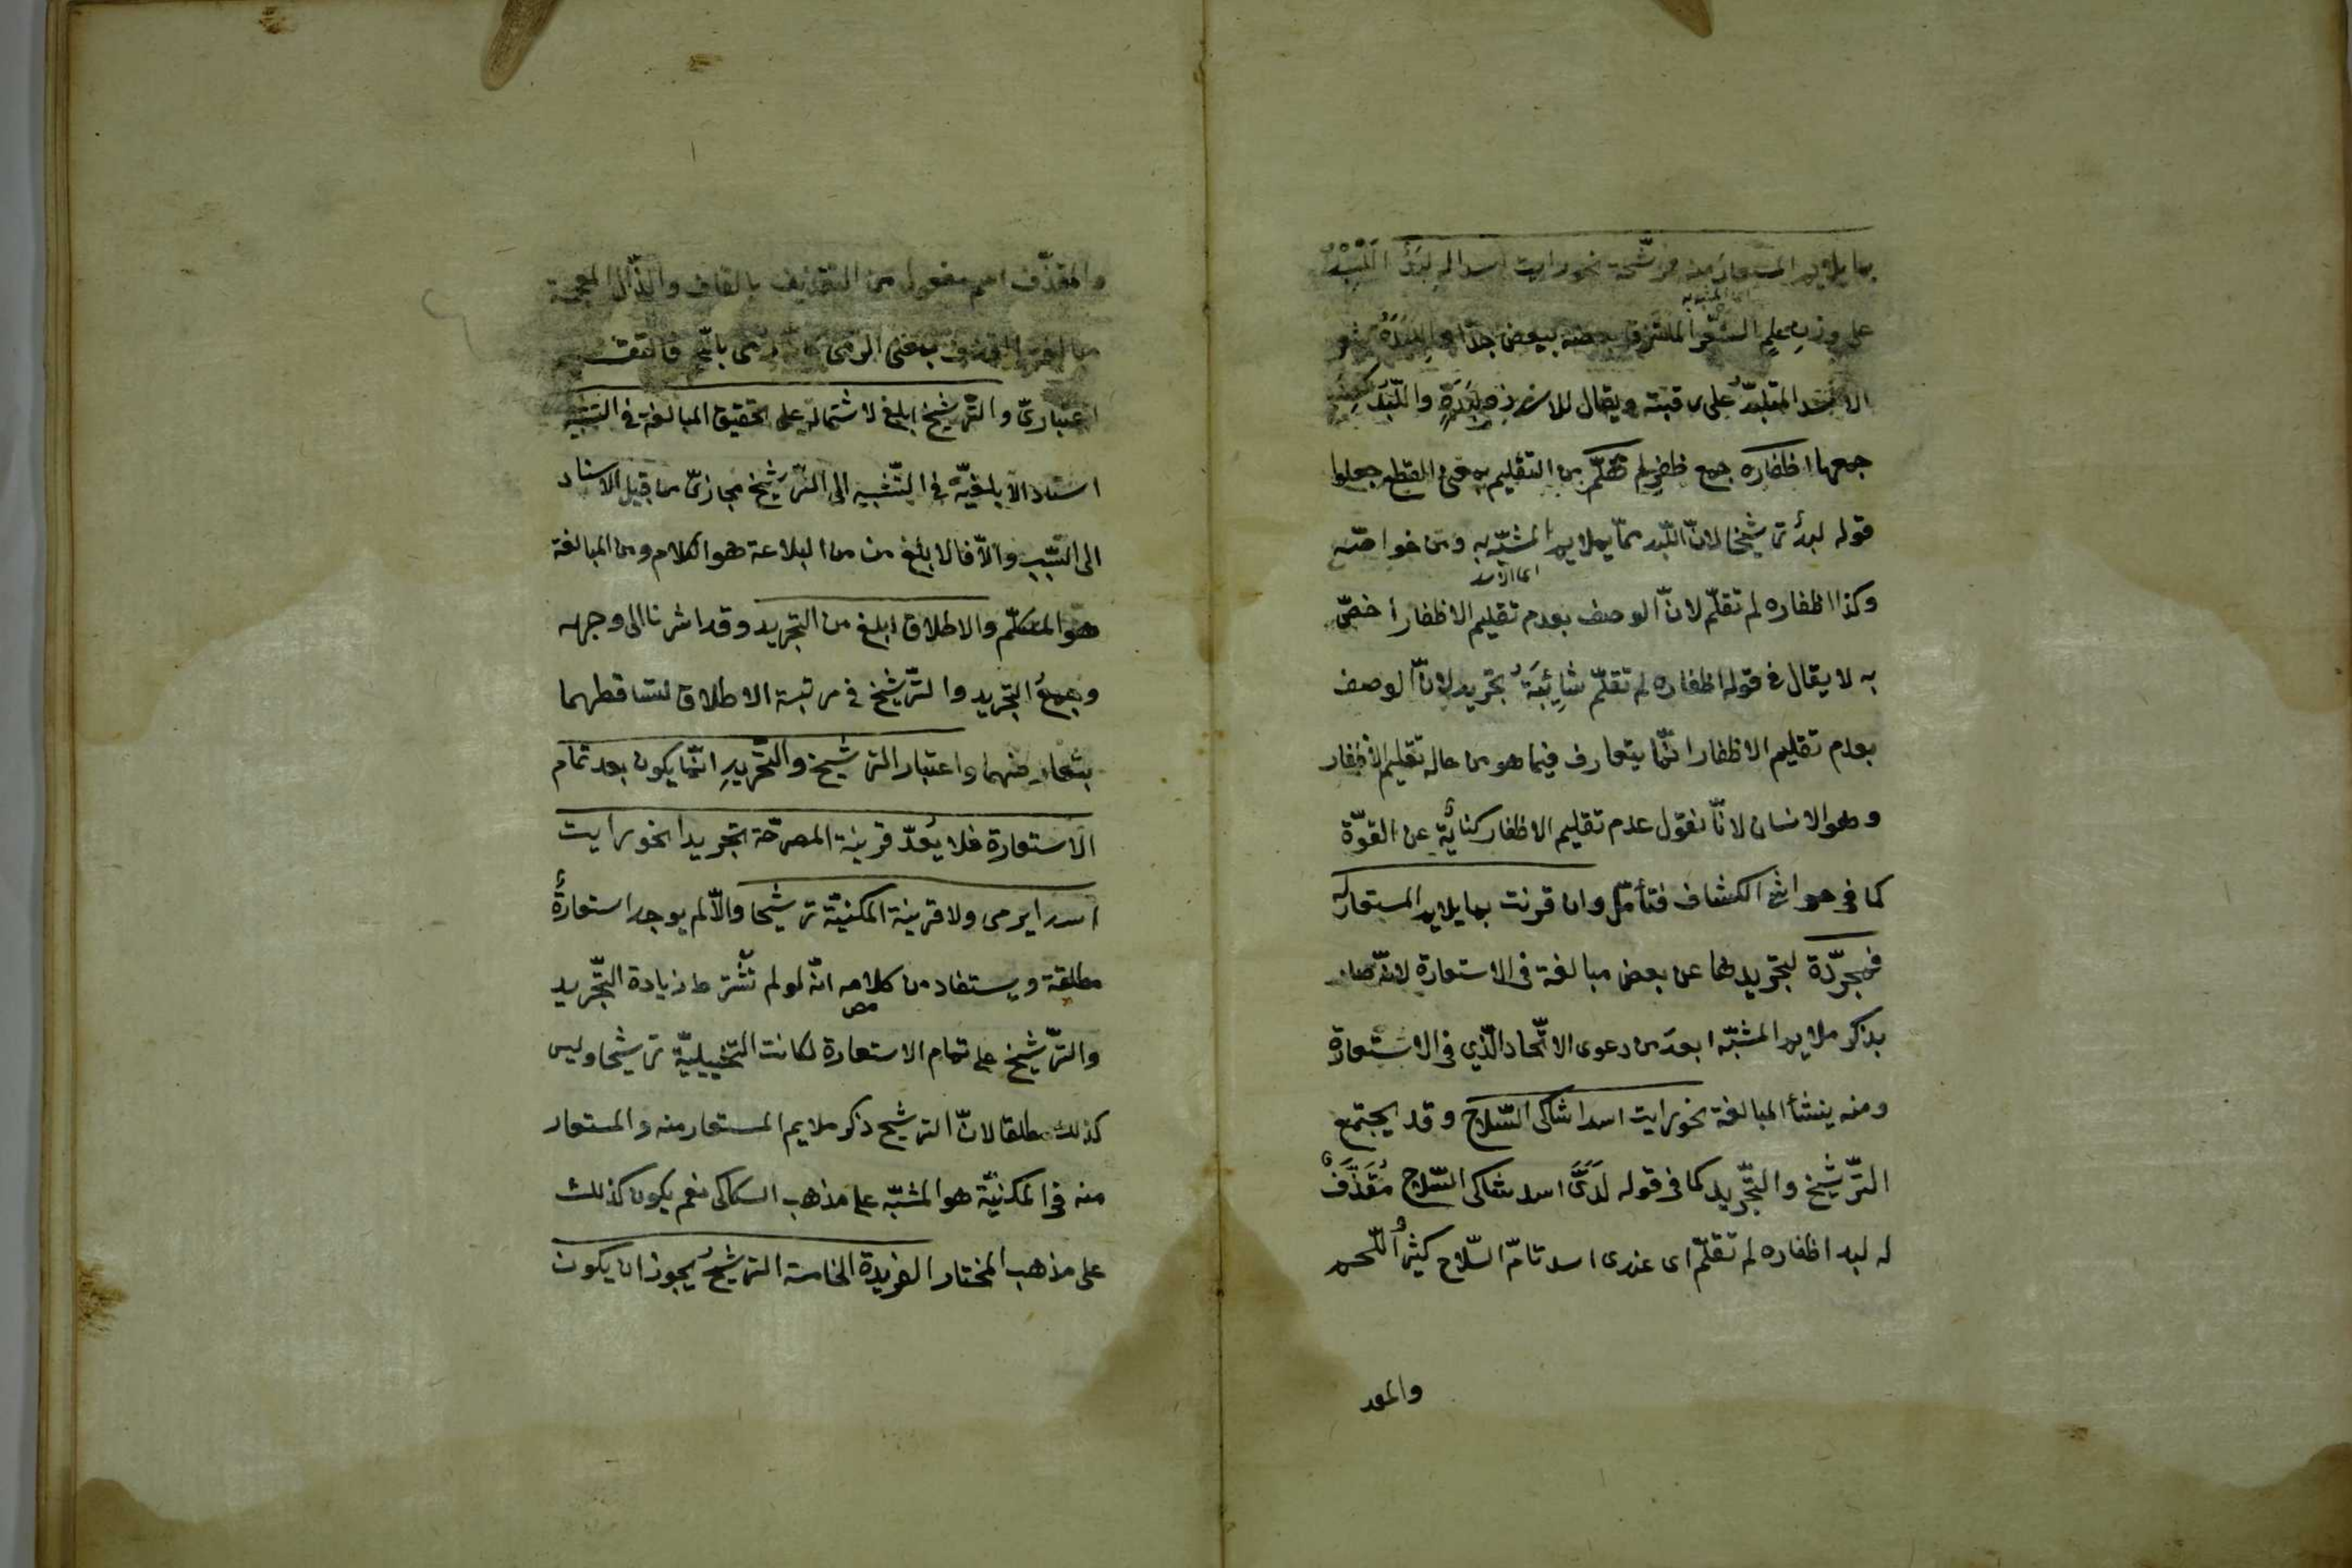 بما يلايم المستعار منه فمرشّحة نحو رايت اسدا له لِبَدٌ اللِّبَدُ
على وزن علم الشَّعر الملتزق بعضه ببعض جدّا
اى المشبه به
الاسد المتلبّد على رقبته ويقال للاسد ذو لِبَدَةٍ واللِّبَدُ كعِنَبٍ
جمعها اظفاره جمع ظفر لم تقلّم من التقليم بمعنى القطع جعلوا
قوله لبدٌ ترشيخا لانّ اللّبد ممّا يلايم المشبّه به ومن خواصّه
اى الاسد
وكذا اظفاره لم تقلّم لانّ الوصف بعدم تقليم الاظفار اخصّ
به لا يقال فى قوله اظفاره لم تقلّم شائِبَةُ تجريد لانّ الوصف
بعدم تقليم الاظفار انّما يتعارف فيما هو من حاله تقليم الاظفار
وهو الانسان لانّا نقول عدم تقليم الاظفار كنايةٌ عن القوّة
كما فى حواشى الكشاف فتأمّل وان قرنت بما يلايم المستعار له
فمجرّدة لتجريدها عن بعض مبالغة فى الاستعارة لانّه صار
بذكر ملايم المشبّه ابعد من دعوى الاتّحاد الّذي فى الاستعارة
ومنه ينشأ المبالغة نحو رايت اسدا شاكى السّلاح وقد يجتمع
التّرشيخ والتّجريد كما فى قوله لَدَىَّ اسد شاكى السّلاح مُقَذَّفٌ
له لبد اظفاره لم تقلّم اى عندى اسد تامّ السّلاح كثيرُ اللّحم
والمقذ
والمقذّف اسم مفعول من التقذيف بالقاف والذّال المعجمة
القذف بمعنى الرّمى كانّه رمى باللّحم
اعتبارىّ والتّرشيخ ابلغ لاشتماله على تحقيق المبالغة فى التشبيه
اسناد الابلغيّة فى التّشبيه الى التّرشيخ مجازىّ من قبيل الاسناد
الى السّبب والاّ فالابلغ من من البلاغة هو الكلام ومن المبالغة
هو المتكلّم والاطلاق ابلغ من التجريد وقد اشرنا الى وجهه
وجمعُ التجريد والتّرشيخ فى مرتبة الاطلاق لتساقطهما
بتعارضهما واعتبار الترشيخ والتّجريدِ انّما يكون بعد تمام
الاستعارة فلا يُعدّ قرينة المصرّحة تجريدا نحو رايت
اسدا يرمى ولا قرينة المكنيّة ترشيخا والاّ لم يوجد استعارةٌ
مطلقة ويستفاد من كلامه انّه لو لم تُشترط زيادة التّجريد
مص
والتّرشيخ على تمام الاستعارة لكانت التّخييليّة ترشيخا وليس
كذلك مطلقا لانّ الترشيح ذكر ملايم المستعار منه والمستعار
منه فى المكنيّة هو المشبّه على مذهب السّكاكى نعم يكون كذلك
على مذهب المختار الفريدة الخامسة الترشيخُ يجوز ان يكون